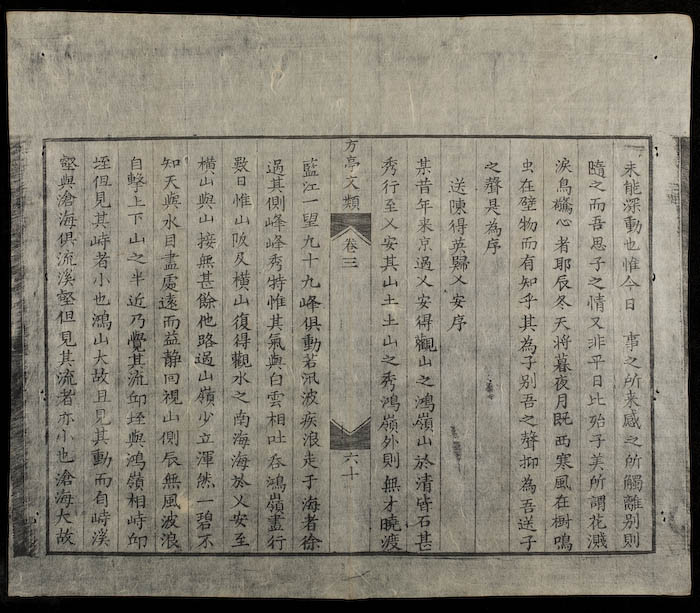 未能深動也惟今日　事之所来感之所觸離别則
隨之而吾思子之情又非平日比殆子美所謂花濺
淚鳥驚心者耶辰冬天将暮夜月既西寒風在樹鳴
虫在壁物而有知乎其為子别吾之聲抑為吾送子
之聲是為序
送陳得英歸乂安序
某昔年来京過乂安得觀山之鴻嶺山於清皆石甚
秀行至乂安其山土土山之秀鴻嶺外則無才曉渡
方亭文類
卷三
六十
藍江一望九十九峰俱動若汛波疾浪走于海者徐
過其側峰峰秀特惟其氣與白雲相吐吞鴻嶺盡行
數日惟山阪及橫山復得觀水之南海海於乂安至
橫山與山接無甚餘他路過山嶺少立渾然一碧不
知天與水目盡處遠而益静向視山側辰無風波浪
自擊上下山之半近乃覺其流卬垤與鴻嶺相峙卬
垤但見其峙者小也鴻山大故且見其動而自峙溪
壑與滄海俱流溪壑但見其流者亦小也滄海大故